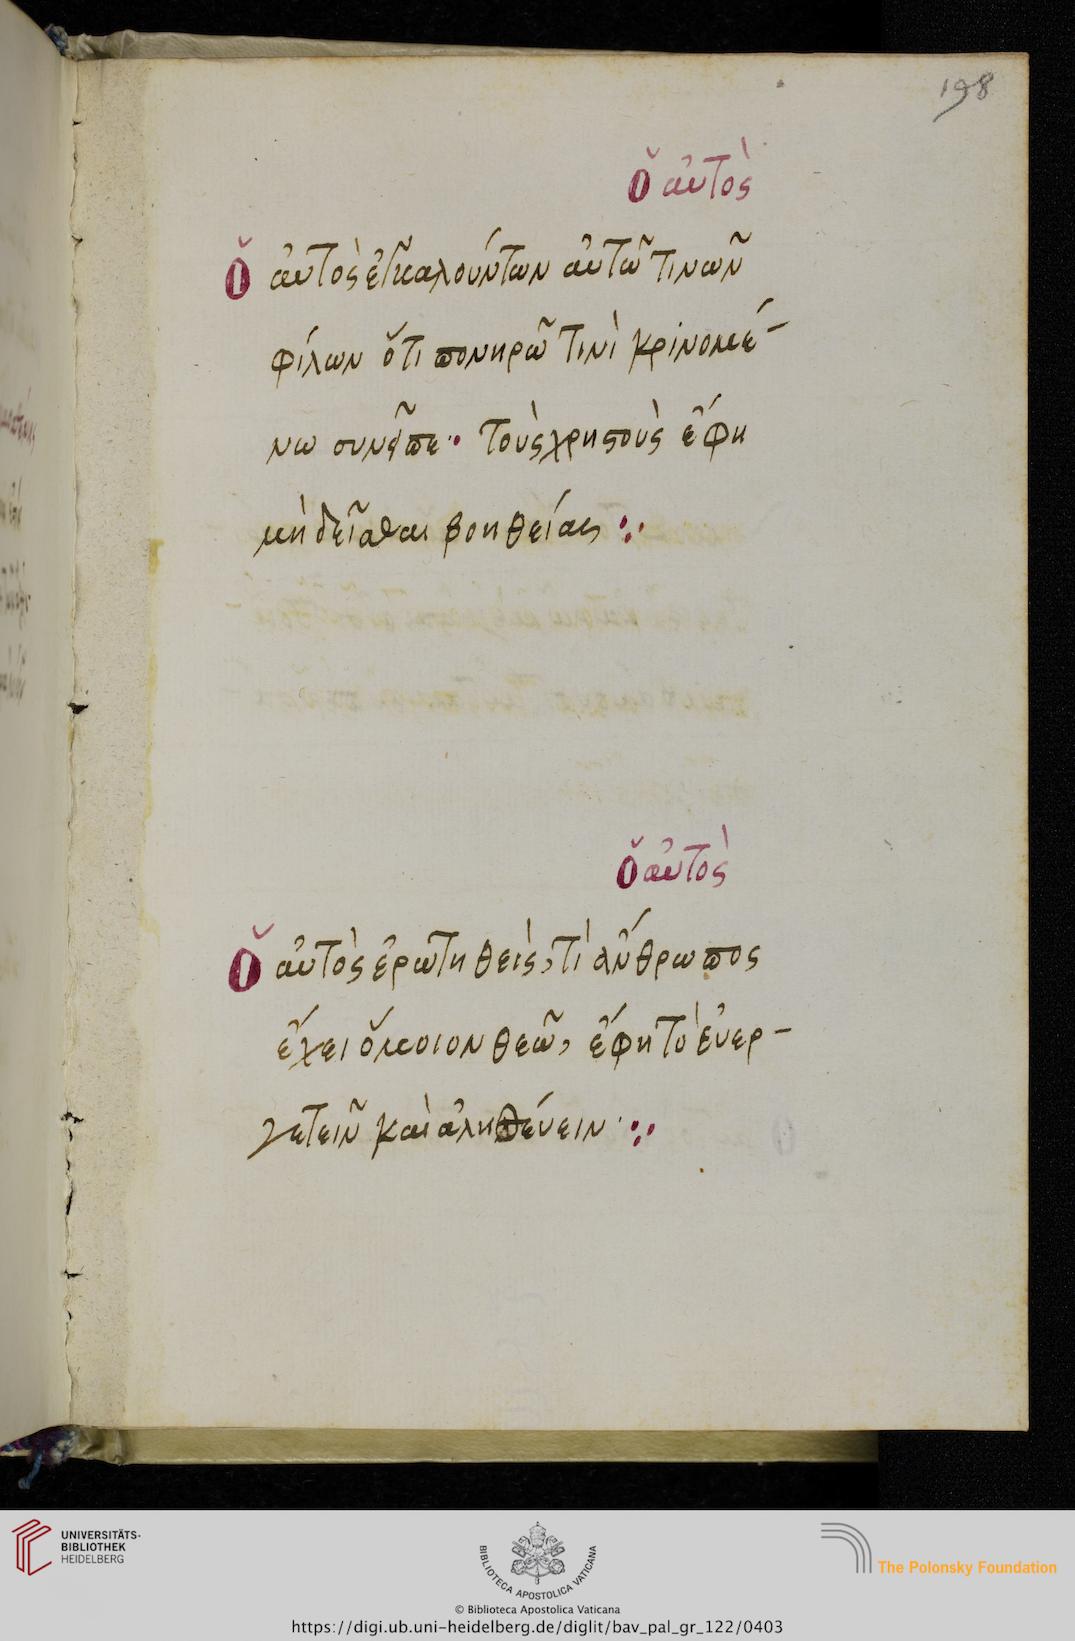 198
Ὁ αὐτὸς
Ὁ αὐτὸς ἐγκαλούντων αὐτῶ τινῶν
φίλων ὅτι πονηρῶ τινὶ κρινομέ-
νω συνῆπε· τοὺς χρηστοὺς ἔφη
μὴ δεῖσθαι βοηθείας :·
Ὁ αὐτὸς
Ὁ αὐτὸς ἐρωτηθεὶς, τί ἄνθρωπος
ἔχει ὅμοιον θεῶ, ἔφη τὸ ἐυερ-
γετεῖν καὶ ἀληθέυειν· :·
UNIVERSITÄTS-
BIBLIOTHEK
HEIDELBERG
BIBLIOTECA APOSTOLICA VATICANA
The Polonsky Foundation
© Biblioteca Apostolica Vaticana
https://digi.ub.uni-heidelberg.de/diglit/bav_pal_gr_122/0403